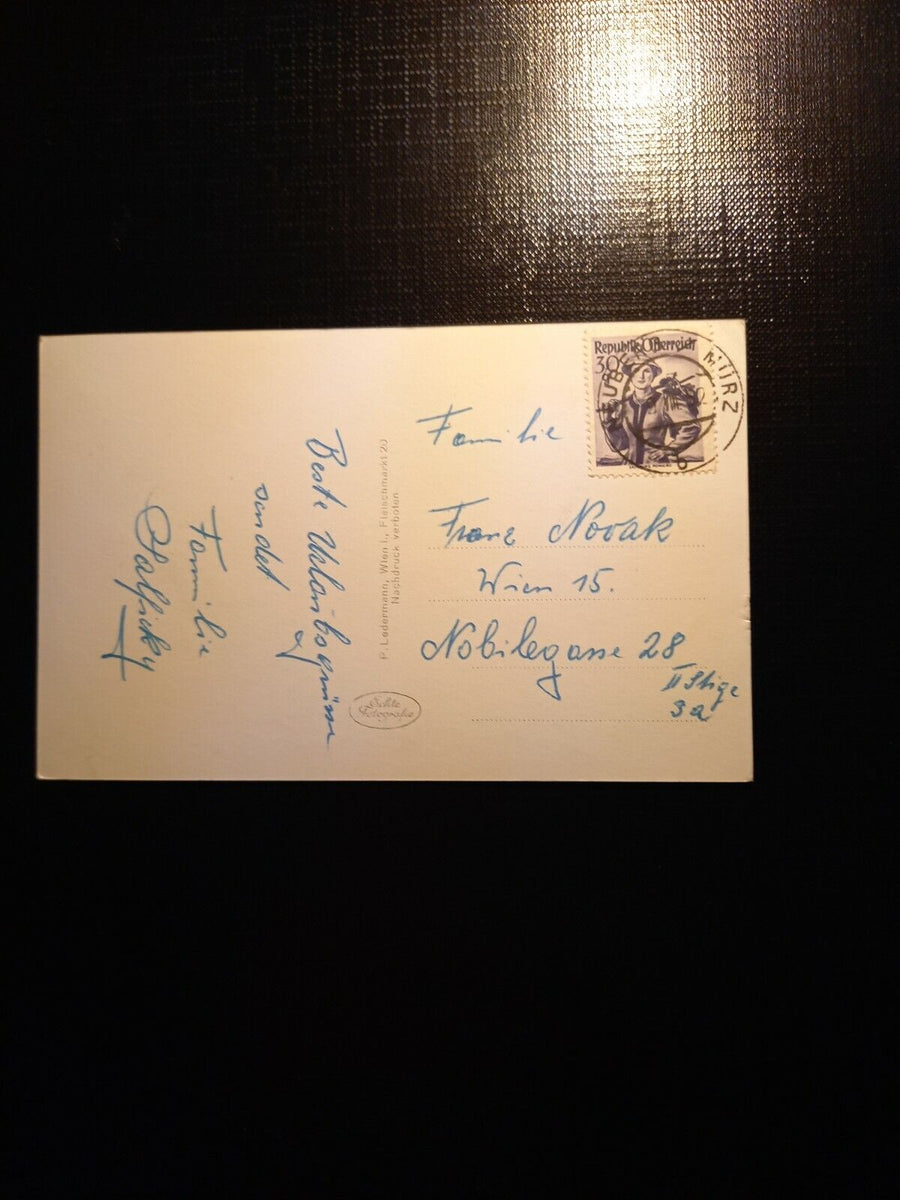 Beste Urlaubsgrüsse
sendet
Familie
P. Ledermann, Wien I., Fleischmarkt 20
Nachdruck verboten
Echte
Fotografie
Republik Österreich
30
NEUBERG
MÜRZ
Familie
Franz Novak
Wien 15.
Nobilegasse 28
II Stige
3a